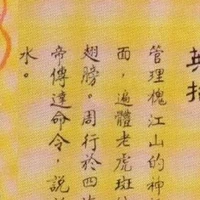 英招
管理槐江山的神
面，遍體老虎斑
翅膀。周行於四海
帝傳達命令，說
水。